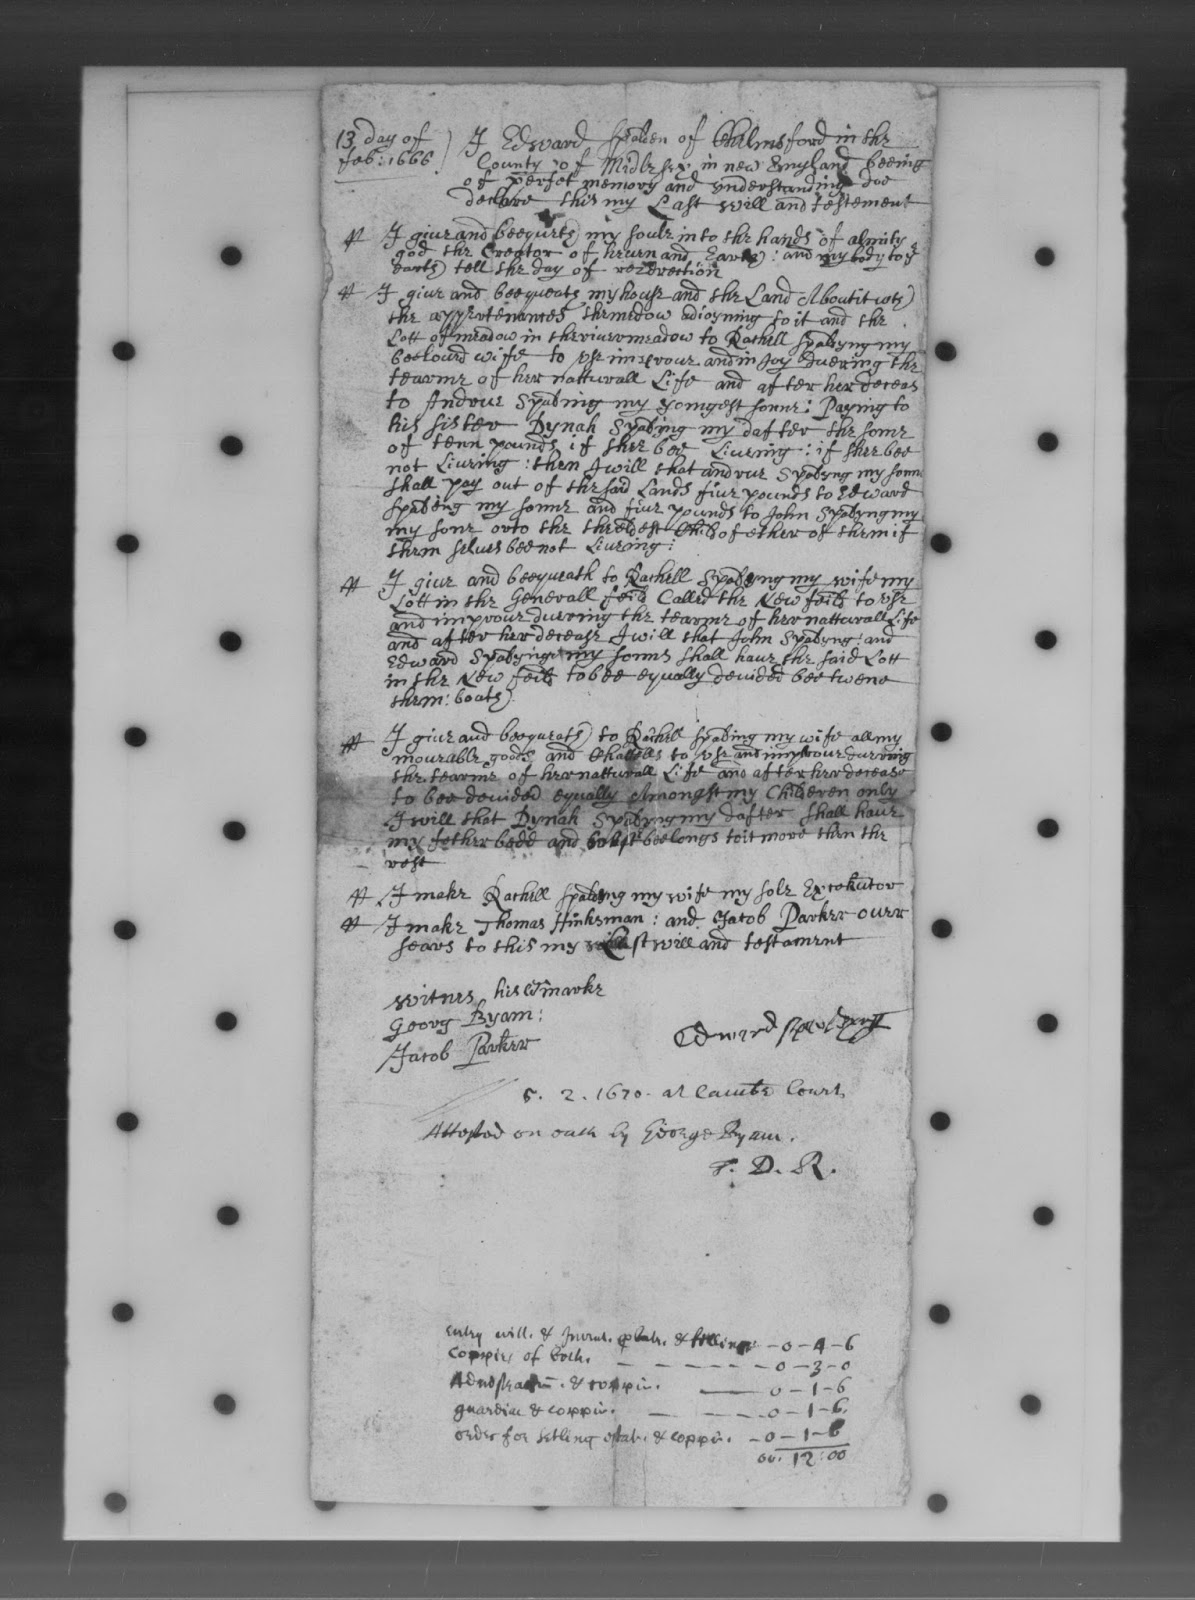 13 day of
feb: 1666
I Edward Spalden of Chelmsford in the
County of Midlesex in new England beeing
of perfet memory and vnderstanding doe
declare this my Last will and testement
I giue and beequeth my soule in to the hands of almity
god the Creator of heuen and Earth: and my body to ye
earth tell the day of rezerection
I giue and beequeath my house and the Land About it with
the appertenances the medow adioyning to it and the
Lott of meadow in the riuer meadow to Rachell Spaldyng my
beeloued wife to vse improue and in Joy duering the
tearme of her natturall Life and after her deceas
to Andrue Spalding my yongest sonne: Paying to
his sister Dynah Spalding my dafter the some
of tenn pounds if shee bee Liueing: if shee bee
not Liueing: then I will that andrue Spaldyng my sonn
shall pay out of the said Lands fiue pounds to Edward
Spalding my sonne and fiue pounds to John Spaldyng my
my sone or to the theeldest Child of ether of them if
them selues bee not Liueing:
I giue and beequeath to Rachell Spaldyng my wife my
Lott in the Generall feild Called the New feild to vse
and improue dureing the tearme of her natturall Life
and after her decease I will that John Spaldyng: and
Edward Spaldynge my sonns shall haue the said Lott
in the New feild to bee equally deuided bee twene
them: boath
I giue and beequeath to Rachell Spalding my wife all my
moueable goods and Chattells to vse and improue dureing
the tearme of her natturall Life and after her decease
to bee deuided equally Amongst my Children only
I will that Dynah Spaldyng my dafter shall haue
my fether bedd and beelongs to it more then the
rest
I make Rachell Spaldyng my wife my sole Executor
I make Thomas Hinksman: and Jacob Parker ouer
sears to this my Last will and testament
Witnes his marke
Georg Byam:
Jacob Parker
Edward Spolding
5. 2. 1670. at Cambr Court
Attested on oath by George Byam.
T. D. R.
Entry will. & Invent. & filling - 0 - 4 - 6
Coppies of both. - 0 - 3 - 0
& coppie. - 0 - 1 - 6
guardian & coppie. - 0 - 1 - 6.
order for setling estate. & coppie. - 0 - 1 - 6
00. 12: 00